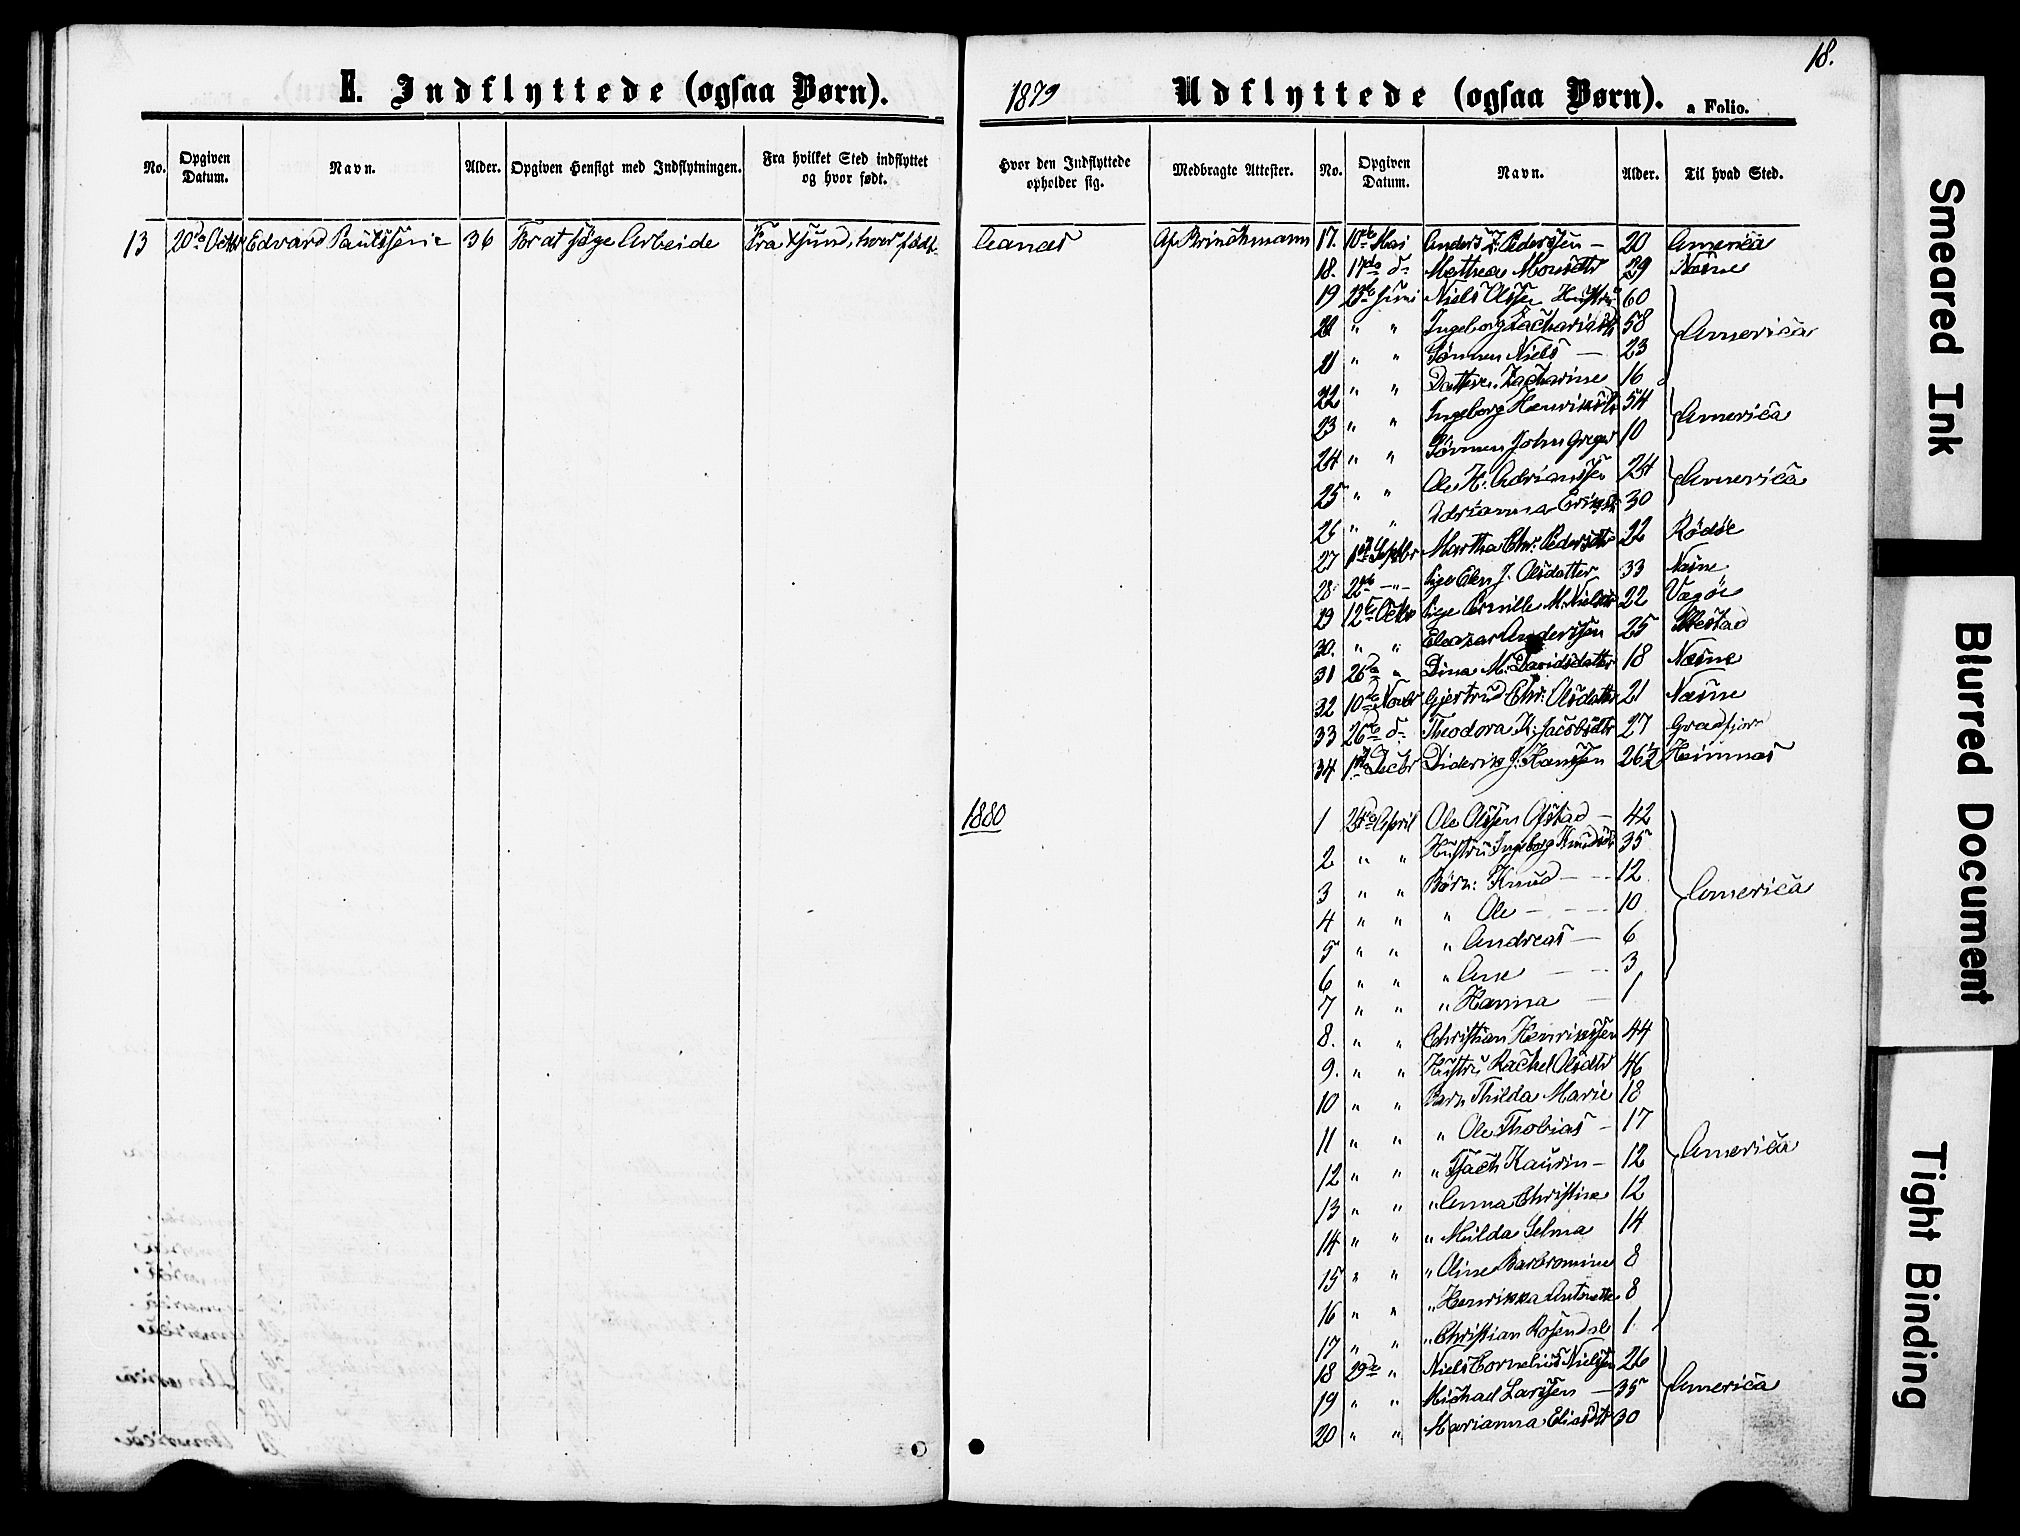 18.
E. Indflyttede (ogsaa Børn).
1879
Udflyttede (ogsaa Børn).
a Folio.
No. Opgiven Datum. Navn. Alder. Opgiven Hensigt med Indflytningen. Fra hvilket Sted indflyttet og hvor født.
Hvor den Indflyttede opholder sig. Medbragte Attester. No. Opgiven Datum. Navn. Alder. Til hvad Sted.
13 20de Octbr 36 For at søge Arbeide Fra hvor født
Af Brinchmann 17. 10de Mai Anders J. Pederssen — 20 America
18. 17de d— Mathea Monsdtr 29 Næsne
19 23de Juni Niels Olssen Hustru 60
20 " " Ingeborg Zachariasdtr 58 America
21 " " Sønnen Niels — 23
22 " " Datteren Zacharine 16
23 " " Ingeborg Henriksdtr 54 America
24 " " Sønnen John Greger 10
25 " " Ole H. Adrianssen 24 America
26 " " Adrianna Eriksdtr 30
27 1ste Septbr Martha Chr: Pedersdtr 22 Rødøe
28 22de — " — Pige Elen J. Olsdatter 33 Næsne
29 12te Octbr Pige Pernille M. Nielsdtr 22 Vægøe
30. " " Eleazar Anderssen 25
31 26de " Dina M. Davidsdatter 18 Næsne
32 10de Novbr Gjertrud Chr: Olsdatter 21 Næsne
33 26de d— Theodora K. Jacobsdtr 27
34 1ste Decbr Diderik J. Hanssen 26½ Hemnæs
1880
1 April Ole Olssen — 42
2 " " Hustru Ingeborg Knudsdtr 35
3 " " Børn: Knud — 12
4 " " " Ole — — 10 America
5 " " " Andreas — 6
6 " " " Ane — 3
7 " " " Hanna — 1
8. " " Christian Henrikssen 44
9. " " Hustru Rachel Olsdtr 46
10 " " Børn Thilda Marie 18
11 " " " Ole Thobias — 17
12 " " " Kaurin — 12 America
13 " " " Anna Christine 12
14 " " " Milda Selma 14
15 " " " Oline Barbromine 8
16 " " " Henrikka Antonette 8
17 " " " Christian Rosendal 1
18 29de " Niels Cornelius Nielssen 26
19 " " Michael Larssen — 35 America
20 " " Marianna Eliasdtr 30
Smeared Ink
Blurred Document
Tight Binding